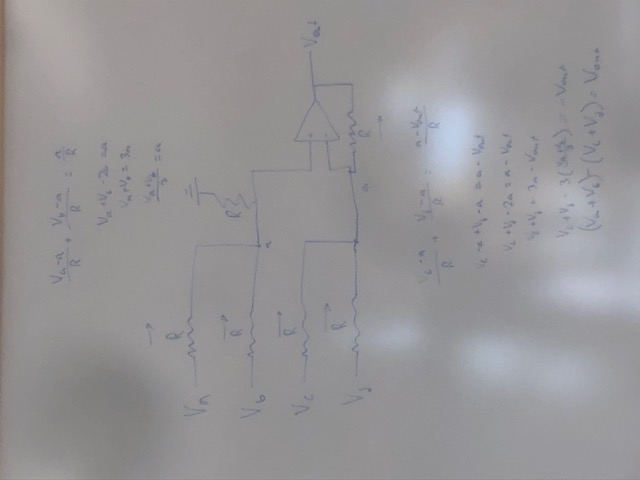 (Va-a)/R + (Vb-a)/R = a/R
Va + Vb - 2a = a
Va + Vb = 3a
(Va+Vb)/3 = a
R
Va
R
R
Vb
a
R
Vc
+
Vout
-
R
Vd
a
R
(Vc-a)/R + (Vd-a)/R = (a-Vout)/R
Vc - a + Vd - a = a - Vout
Vc + Vd - 2a = a - Vout
Vc + Vd = 3a - Vout
Vc + Vd - 3((Va+Vb)/3) = -Vout
(Va+Vb) - (Vc+Vd) = Vout